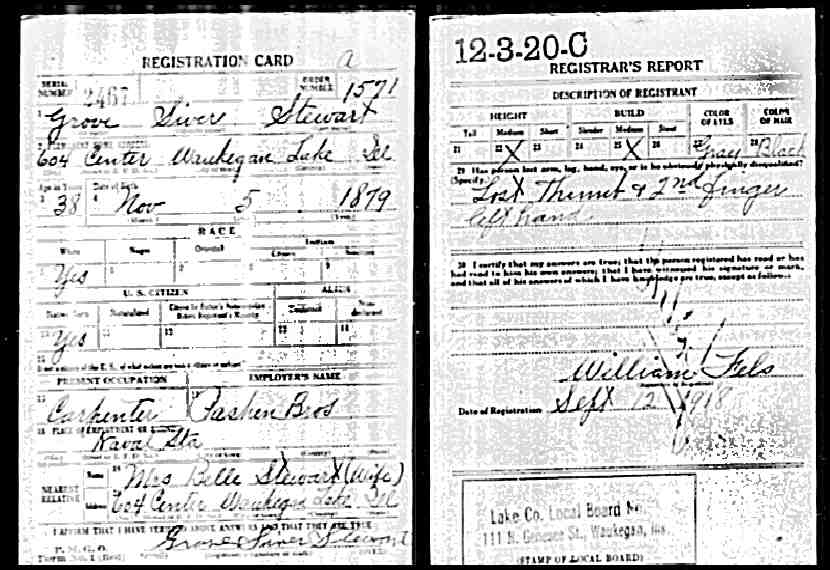 REGISTRATION CARD a
SERIAL NUMBER 2467 ORDER NUMBER 1571
1 Grove Siver Stewart
604 Center Waukegan Lake Ill
Age in Years Date of Birth
3 38 4 Nov 5 1879
RACE
White Negro Oriental Indian
Yes
U. S. CITIZEN ALIEN
Native Born Naturalized
Yes 11 12 13 14
15
PRESENT OCCUPATION EMPLOYER'S NAME
Carpenter Pashen Bros
PLACE OF EMPLOYMENT OR
Naval Sta
NEAREST RELATIVE
Name Mrs Belle Stewart (Wife)
Address 604 Center Waukegan Lake Ill
I AFFIRM THAT I HAVE VERIFIED ABOVE ANSWERS AND THAT THEY ARE TRUE
P. M. G. O.
Form No. 1 (Red) Grove Siver Stewart
12-3-20-C
REGISTRAR'S REPORT
DESCRIPTION OF REGISTRANT
HEIGHT BUILD COLOR OF EYES COLOR OF HAIR
Tall Medium Short Slender Medium Stout
21 22 X 23 24 25 X 26 Gray Black
29 Has person lost arm, leg, hand, eye, or is he obviously physically disqualified?
(Specify.) Lost &  2nd finger
left hand
30 I certify that my answers are true; that the person registered has read or has
had read to him his own answers; that I have witnessed his signature or mark,
and that all of his answers of which I have knowledge are true, except as follows:
William Fels
Date of Registration Sept 12 1918
Lake Co. Local Board No.
111 N. Genesee St., Waukegan, Ills.
(STAMP OF LOCAL BOARD)